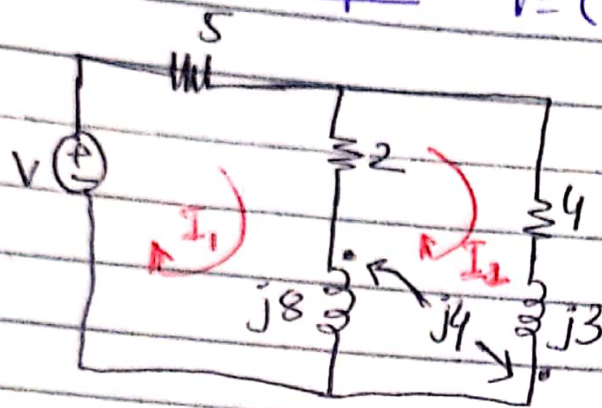 V = (
5
V
+
-
2
I₁
I₂
4
j8
j4
j3